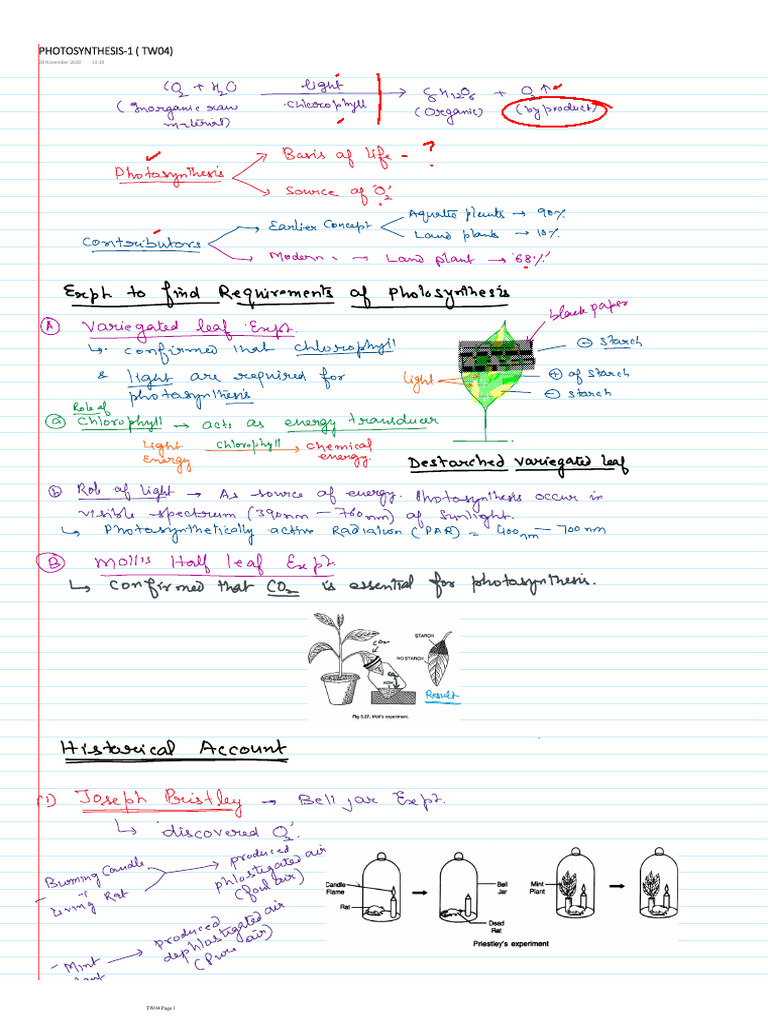 PHOTOSYNTHESIS-1 ( TW04)
28 November 2020 10:10
CO2 + H2O light C6H12O6 + O2 ↑
(Inorganic raw material) Chlorophyll (Organic) (by product)
Photosynthesis
Basis of life - ?
Source of 'O2'
Contributors
Earlier Concept
Aquatic plants → 90%
Land plants → 10%
Modern " → Land plant → '68%'
Expt to find Requirements of Photosynthesis
(A) Variegated leaf Expt.
↳ Confirmed that chlorophyll
& light are required for
photosynthesis
black paper
⊖ starch
⊕ of starch
⊖ starch
light
Destarched variegated leaf
Role of
(a) Chlorophyll → acts as energy transducer
Light Energy Chlorophyll → chemical energy.
(b) Role of light → As source of energy. Photosynthesis occur in
visible spectrum (390nm - 760nm) of Sunlight.
↳ Photosynthetically active Radiation (PAR) = 400nm - 700nm
(B) Moll's Half leaf Expt
↳ Confirmed that CO2 is essential for photosynthesis.
STARCH
NO STARCH
KOH
Result
Fig 5.27. Moll's experiment.
Historical Account
(1) Joseph Pristley → Bell jar Expt.
↳ 'discovered O2'.
- Burning Candle
+
Living Rat
produced
phlostigated air
(foul air)
- Mint
produced
dephlostigated air
(Pure air)
Candle Flame
Rat
Bell Jar
Dead Rat
Mint Plant
Priestley's experiment
TW04 Page 1